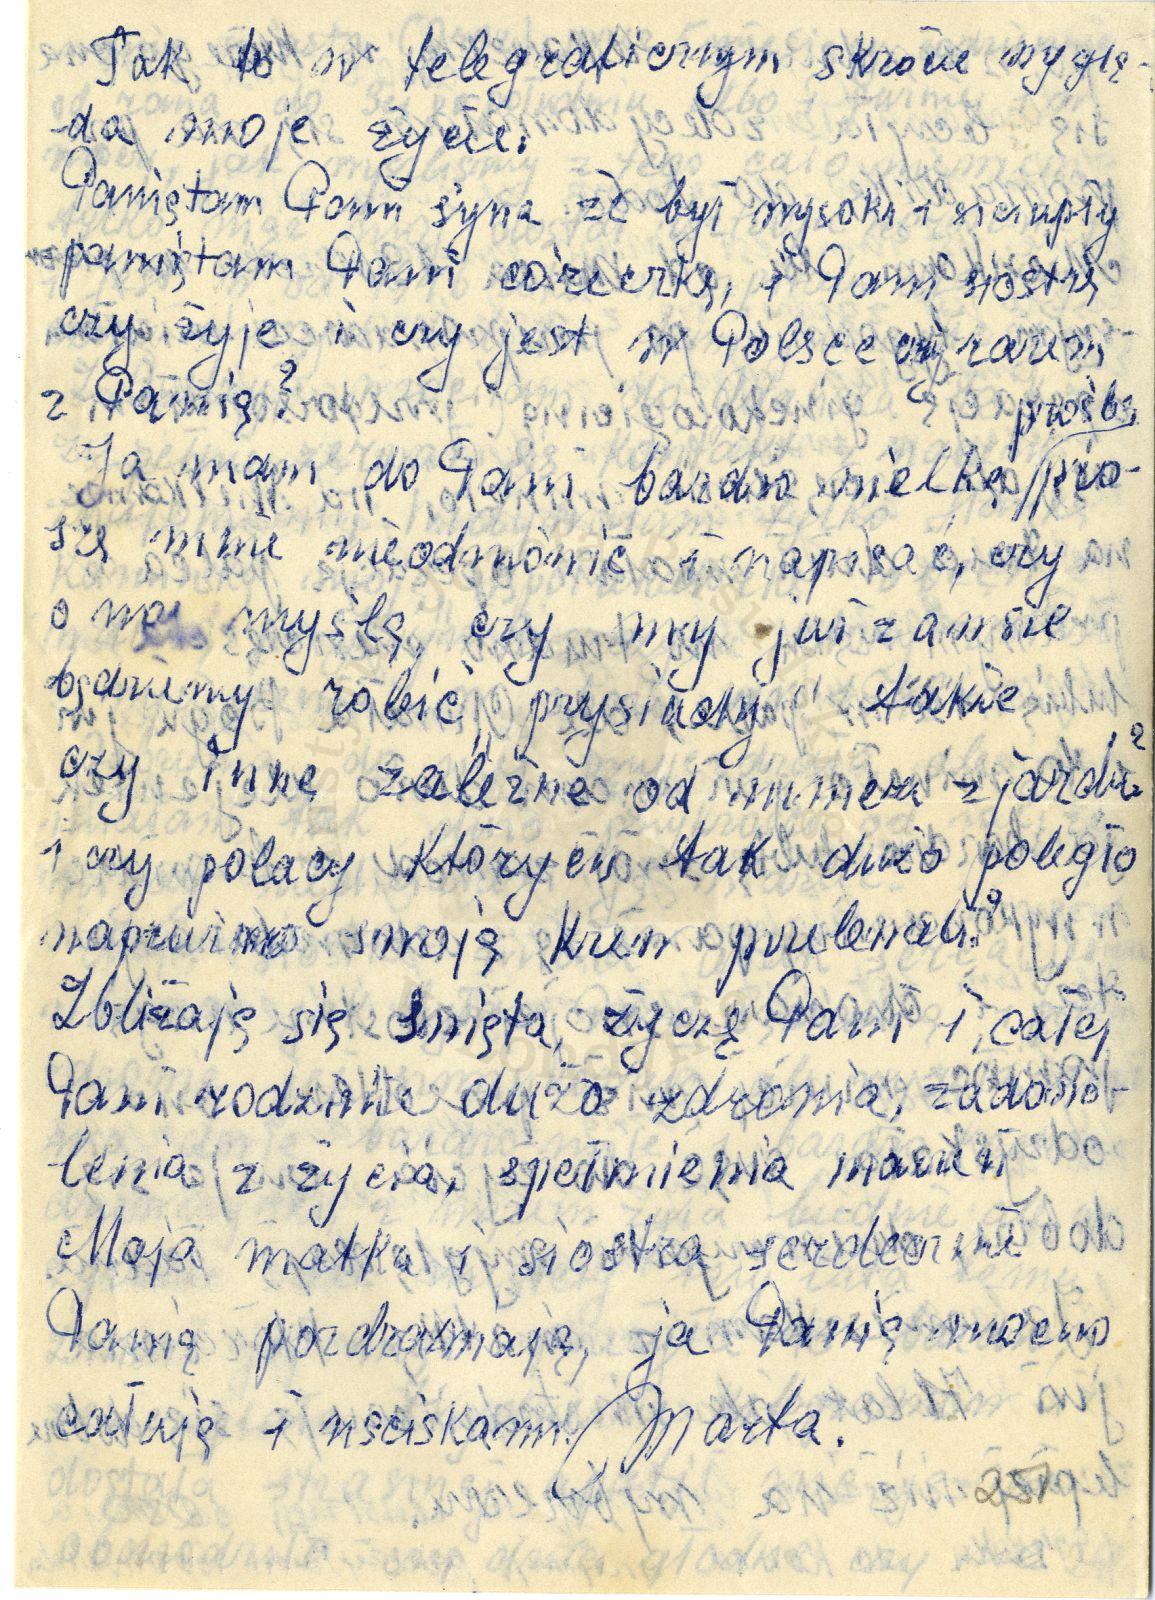 Tak to w telegraficznym skrócie wyglą-
da moje życie.
Pamiętam Pani syna że był wysoki i szczupły
pamiętam Pani córeczkę, i Pani siostrę
czy żyje i czy jest w Polsce czy razem
z Panią?
prośbę
Ja mam do Pani bardzo wielką pro-
szę mnie nieodmówić i napisać, czy
o myślą, czy my już zawsze
będziemy robić przysiady takie
czy inne zależne od numeru zjazdu?
i czy polacy których tak dużo poległo
napróżno swoją krew przelewali?
Zbliżają się Święta, życzę Pani i całej
Pani rodzinie dużo zdrowia, zadowo-
lenia z życia, spełnienia marzeń
Moja matka i siostra serdecznie
Panią pozdrawiają, ja Panią mocno
całuję i uściskam. Marta.
251